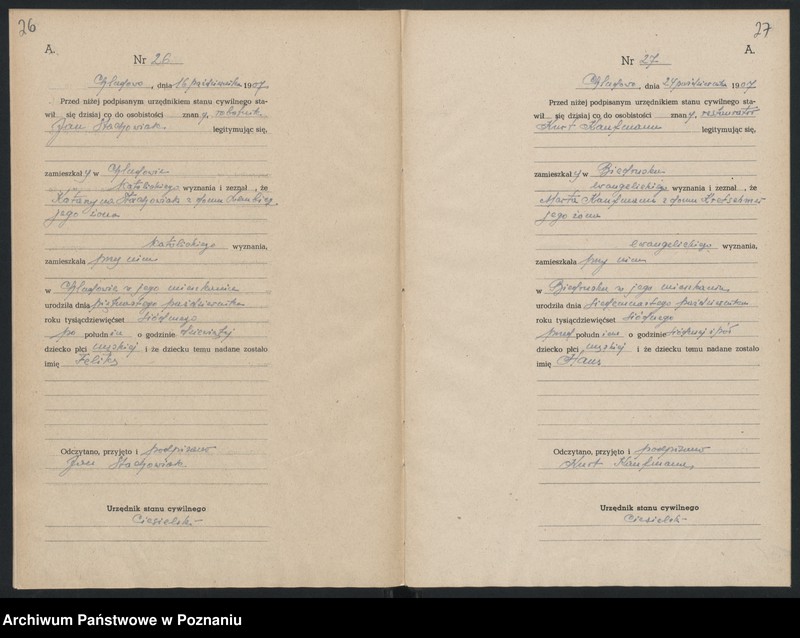 26
A.
Nr 26
, dnia 16 października 1907
Przed niżej podpisanym urzędnikiem stanu cywilnego sta-
wił się dzisiaj co do osobistości znany, robotnik
Jan Stachowiak legitymując się,
zamieszkały w
katolickiego wyznania i zeznał, że
Katarzyna Stachowiak z domu
jego żona
katolickiego wyznania,
zamieszkała przy nim
w w jego mieszkaniu
urodziła dnia piętnastego października
roku tysiącdziewięćset siódmego
po południu o godzinie dziewiątej
dziecko płci męskiej i że dziecku temu nadane zostało
imię Feliks
Odczytano, przyjęto i podpisano
Jan Stachowiak
Urzędnik stanu cywilnego
Ciesielski
27
A.
Nr 27
, dnia 24 października 1907
Przed niżej podpisanym urzędnikiem stanu cywilnego sta-
wił się dzisiaj co do osobistości znany, restaurator
Kurt Kaufmann legitymując się,
zamieszkały w Biedrusku
ewangelickiego wyznania i zeznał, że
Marta Kaufmann z domu
jego żona
ewangelickiego wyznania,
zamieszkała przy nim
w Biedrusku w jego mieszkaniu
urodziła dnia siedemnastego października
roku tysiącdziewięćset siódmego
przed południem o godzinie siódmej i pół
dziecko płci męskiej i że dziecku temu nadane zostało
imię Hans
Odczytano, przyjęto i podpisano
Kurt Kaufmann
Urzędnik stanu cywilnego
Ciesielski
Archiwum Państwowe w Poznaniu